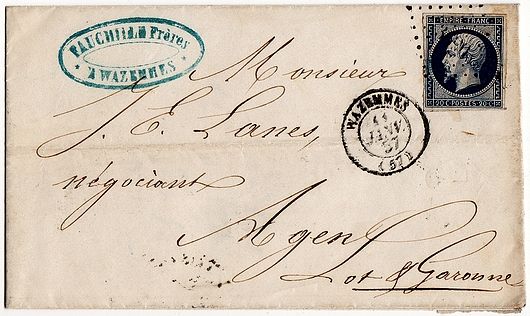 FAUCHILLE Frères
A WAZEMMES
EMPIRE FRANC
20 C POSTES 20 C
WAZEMMES
11
JANV
57
(57)
Monsieur
J. E. Lanes,
négociant
Agen
Lot & Garonne